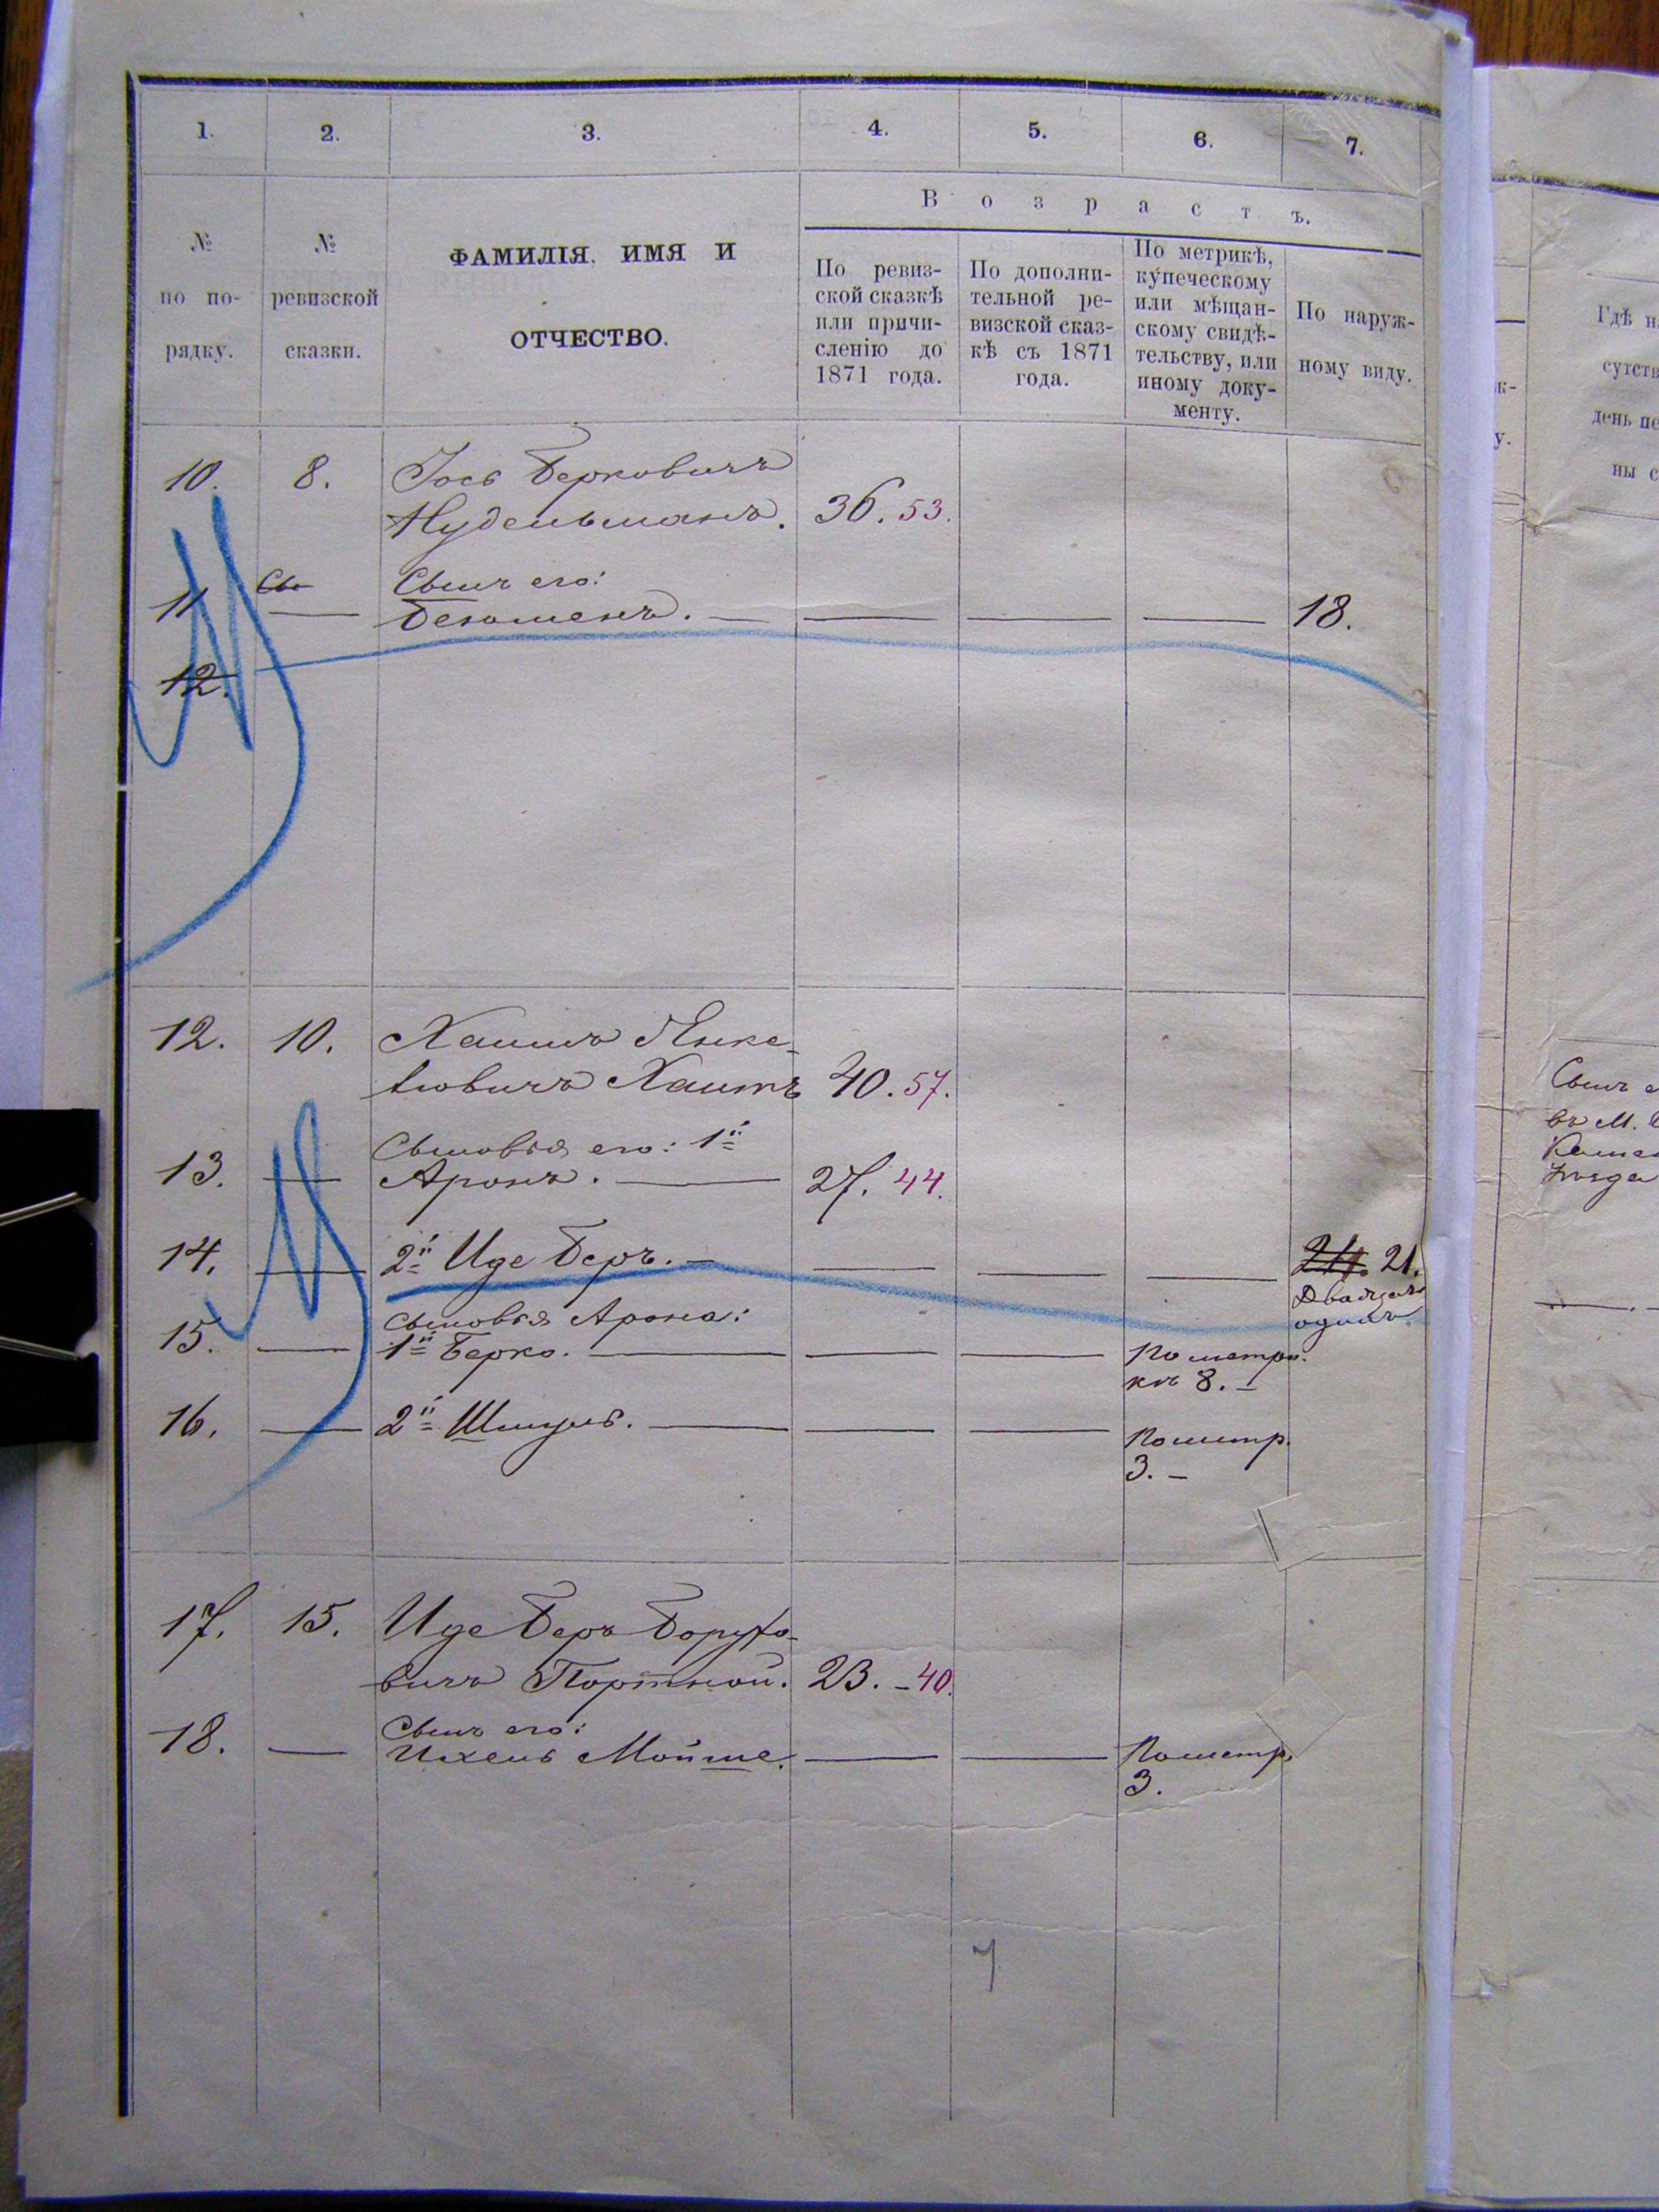 1. 2. 3. 4. 5. 6. 7.
№
по по-
рядку.
№
ревизской
сказки.
ФАМИЛІЯ, ИМЯ И
ОТЧЕСТВО.
Возрастъ.
По ревиз-
ской сказкѣ
или причи-
сленію до
1871 года.
По дополни-
тельной ре-
визской сказ-
кѣ съ 1871
года.
По метрикѣ,
купеческому
или мѣщан-
скому свидѣ-
тельству, или
иному доку-
менту.
По наруж-
ному виду.
10. 8. Іось Берковичъ
Нудельманъ. 36. 53.
Сы Сынъ его:
11 — — — — 18.
12.
12. 10. Хаимъ Янке-
левичъ Хаитъ 40. 57.
Сыновья его: 1й
13. — Аронъ. — 27. 44.
14. — 2й Иде Беръ. — — — — 24. 21.
Двадцать
одинъ
Сыновья Арона:
15. — 1й Берко. — — — По метри.
кѣ 8. —
16. — 2й Шмуль. — — — По метр.
3. —
17. 15. Иде Беръ Борухо-
вичъ Портной. 23. – 40.
Сынъ его:
18. — Ихель Мойше. — — По метр.
3.
Гдѣ н
сутств
день пе
ны с
к-
у.
Сынъ е
въ М.
7